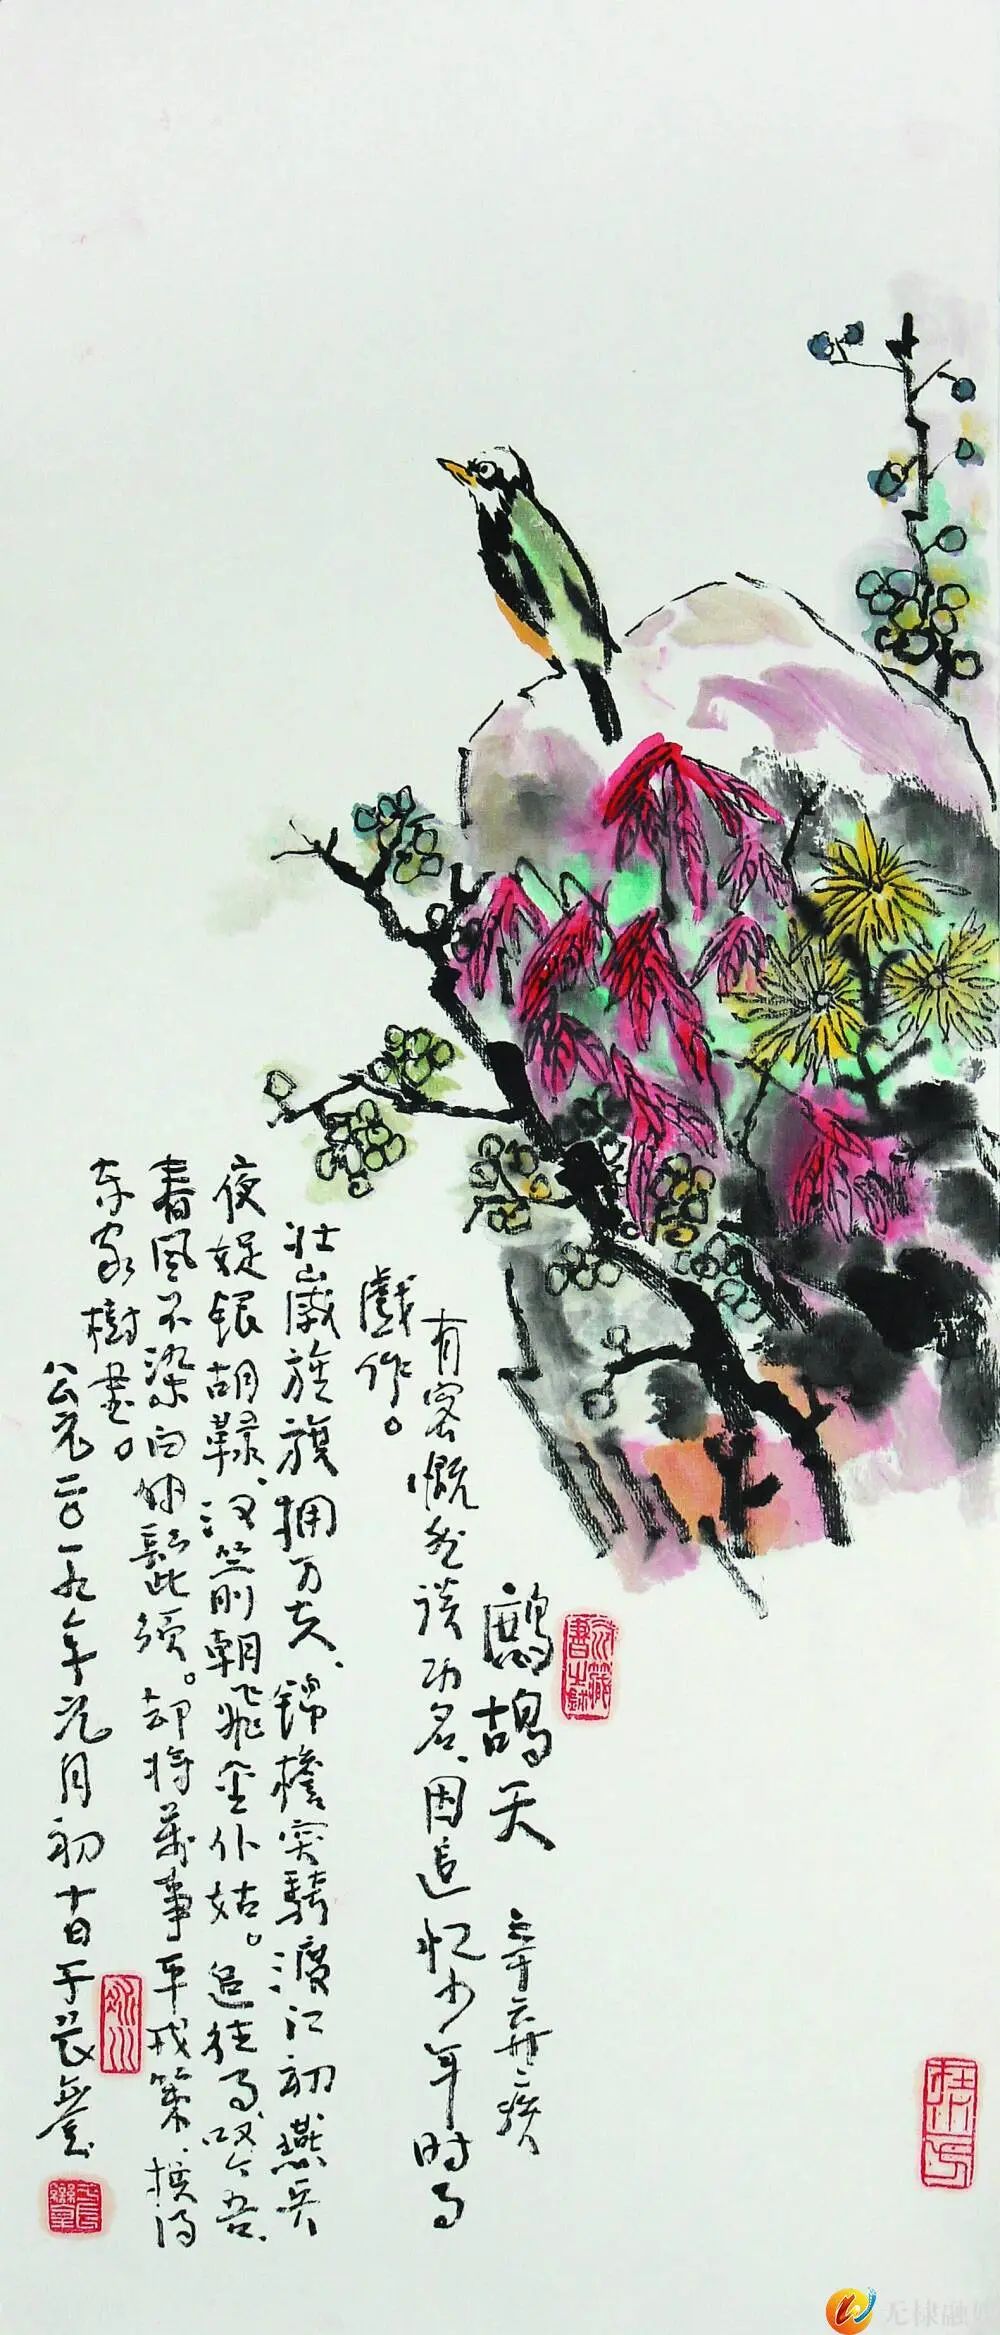 鷓鴣天 辛弃疾
有客慨然谈功名、因追忆少年时事
戲作。
壮歲旌旗拥万夫、锦襜突騎渡江初燕兵
夜娖银胡䩮、汉箭朝飛金仆姑。追往事、叹今吾、
春风不染白髭须。却将萬事平戎策、换得
东家樹书。
公元二〇一九年元月初十日于
无棣融